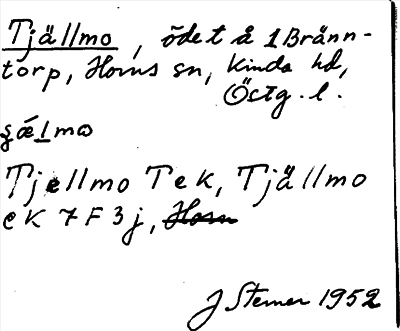 Tjällmo, ödet å 1 Bränn-
torp, Horns sn, Kinda hd,
Östg. l.
şælmω
Tjellmo Tek, Tjällmo
eK 7F3j, Horn
J Sterner 1952